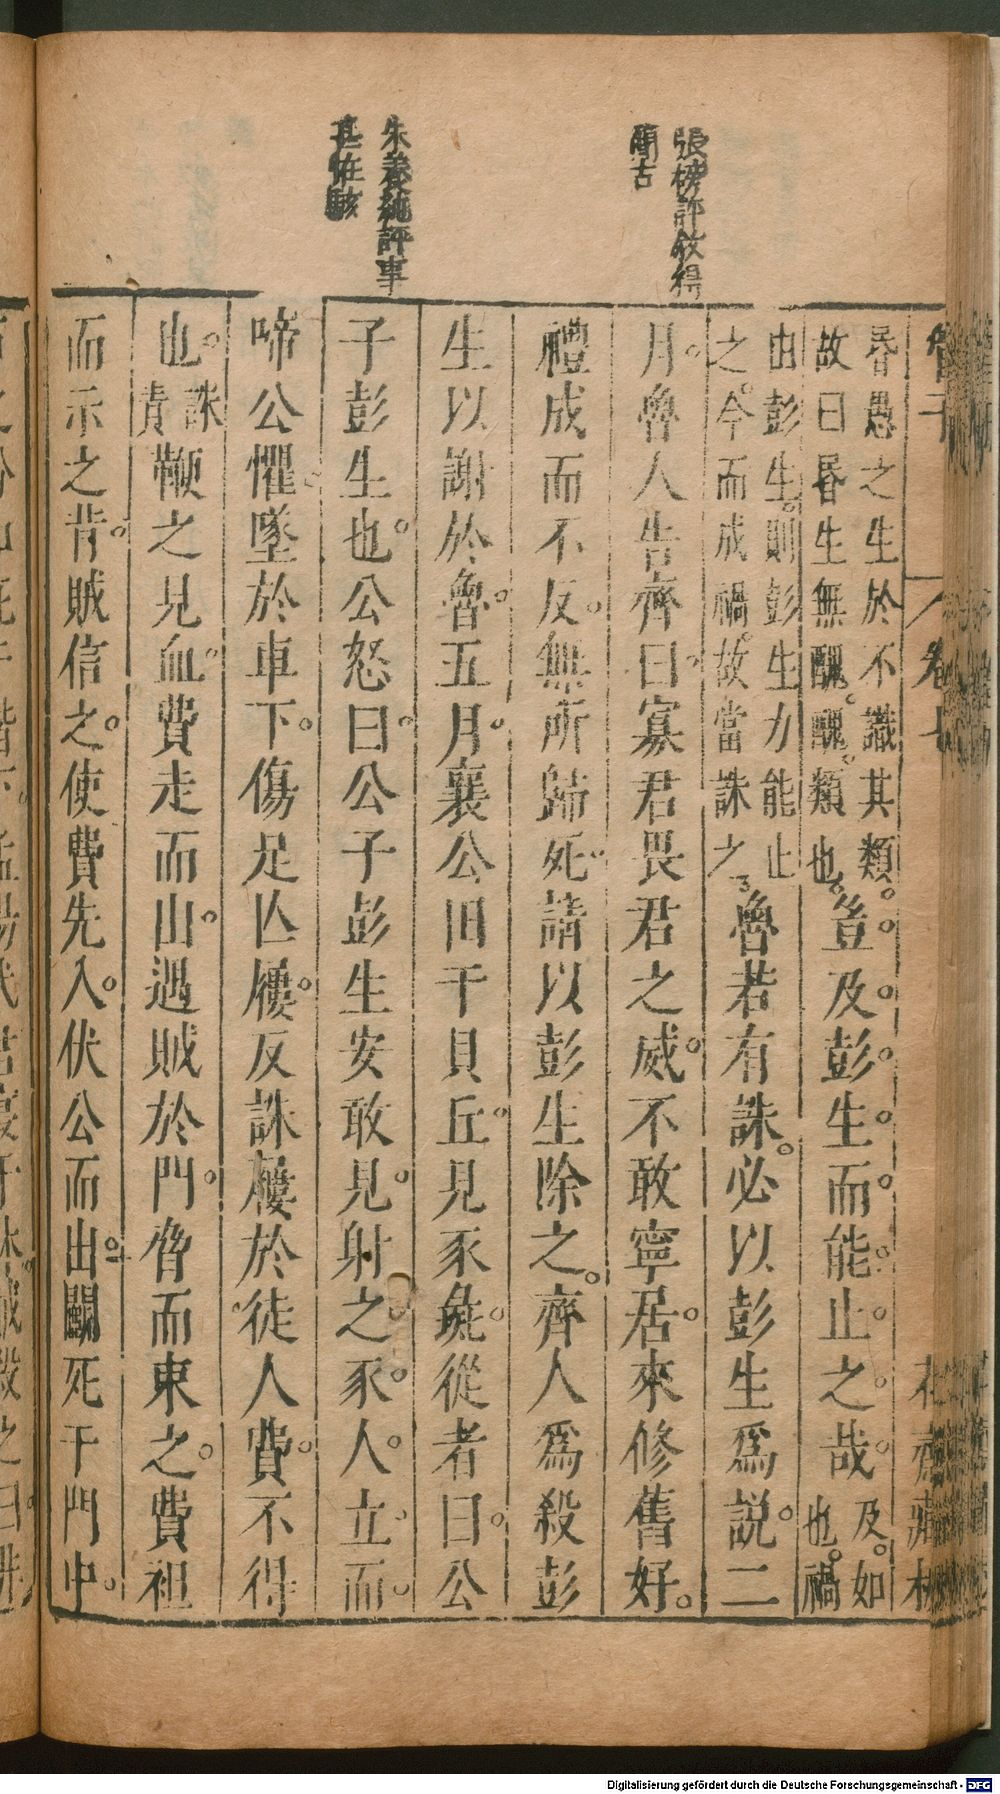 張榜評敘得
簡古
朱養純評事
甚怪駭
管子
卷七
花齋藏板
昏愚之生於不識其類。
故曰昏生無醜。醜。類也。
豈及彭生而能止之哉
及。如
也。禍
由彭生。則彭生力能止
之。今而成禍。故當誅之。
魯若有誅。必以彭生爲說。二
月。魯人告齊。曰寡君畏君之威。不敢寧居。來修舊好。
禮成而不反。無所歸死。請以彭生除之。齊人爲殺彭
生以謝於魯。五月。襄公田于貝丘。見豕彘。從者曰。公
子彭生也。公怒曰。公子彭生安敢見。射之。豕人立而
啼公懼墜於車下。傷足亡屨。反誅屨於徒人費。不得
也。
誅
責
鞭之見血。費走而出。遇賊於門。脅而束之。費袒
而示之背。賊信之。使費先入。伏公而出。鬬死于門中。
Digitalisierung gefördert durch die Deutsche Forschungsgemeinschaft - DFG